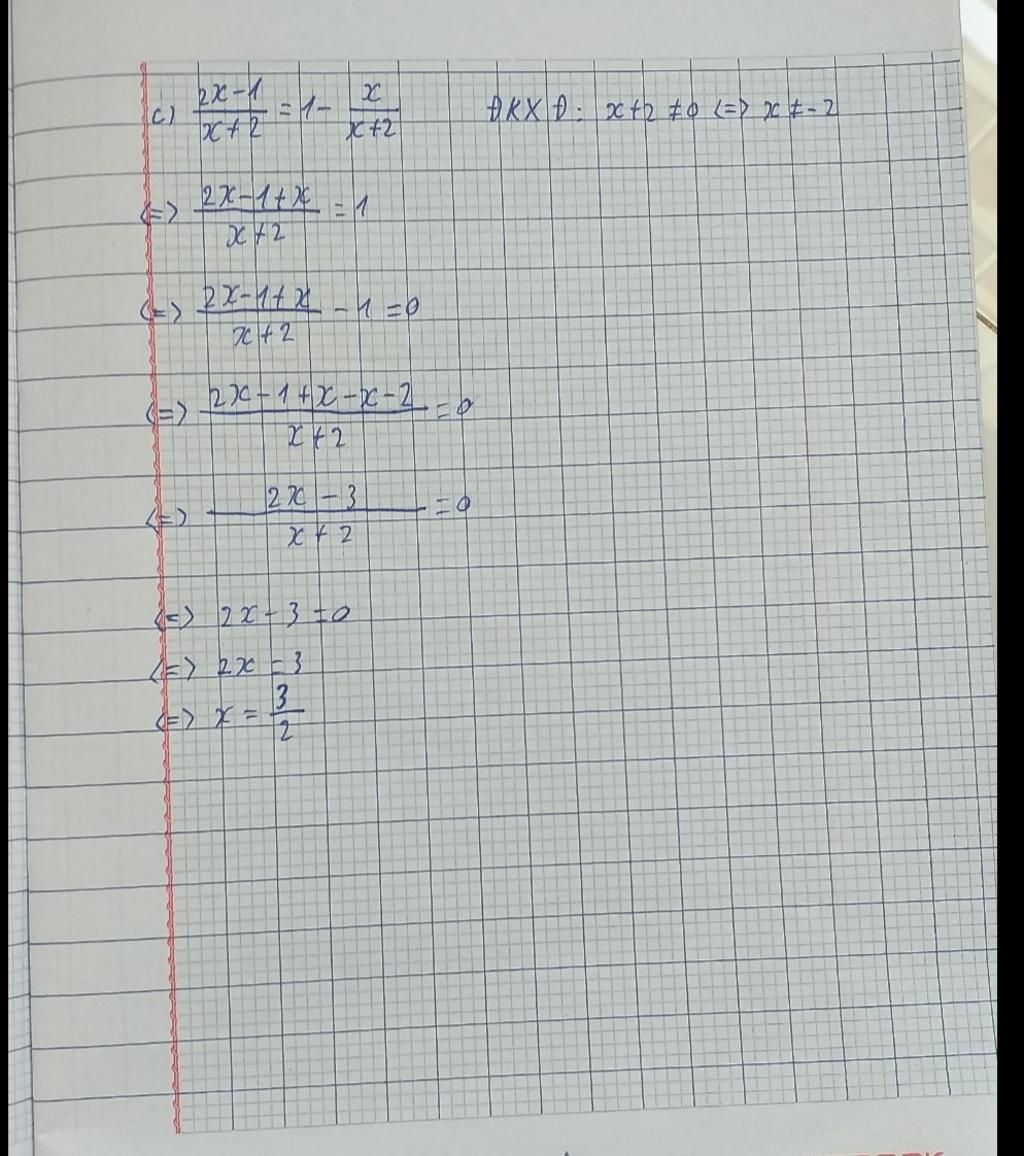 c) \frac{2x-1}{x+2} = 1 - \frac{x}{x+2} ĐKXĐ: x+2 ≠ 0 <=> x ≠ -2
<=> \frac{2x-1+x}{x+2} = 1
<=> \frac{2x-1+x}{x+2} - 1 = 0
<=> \frac{2x-1+x-x-2}{x+2} = 0
<=> \frac{2x-3}{x+2} = 0
<=> 2x-3 = 0
<=> 2x = 3
<=> x = \frac{3}{2}